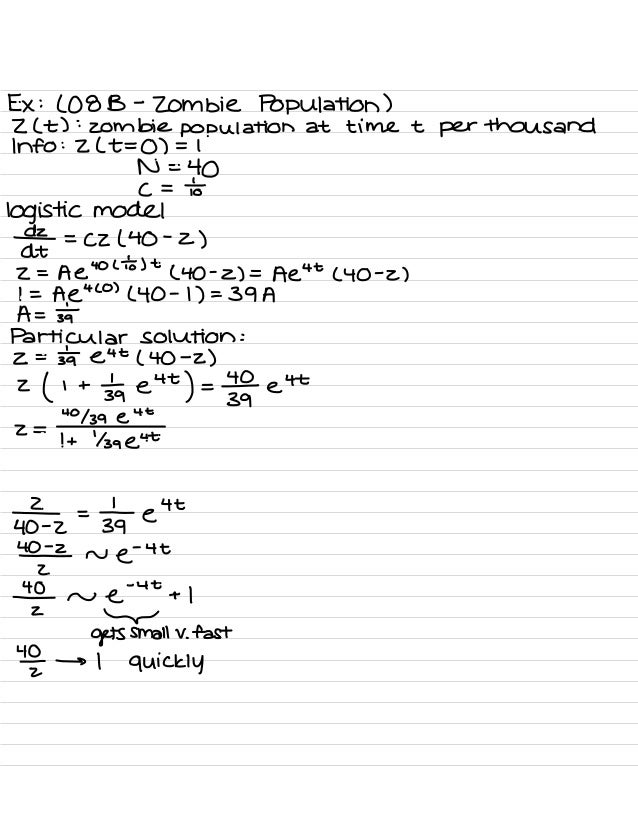 Ex: (08B - Zombie Population)
Z(t): zombie population at time t per thousand
Info: Z(t=0) = 1
N = 40
C = 1/10
logistic model
dz/dt = cz(40-z)
z = Ae^40(1/10)t (40-z) = Ae^4t (40-z)
1 = Ae^4(0) (40-1) = 39A
A = 1/39
Particular solution:
z = 1/39 e^4t (40-z)
z (1 + 1/39 e^4t) = 40/39 e^4t
z = 40/39 e^4t / 1 + 1/39 e^4t
z/40-z = 1/39 e^4t
40-z/z ~ e^-4t
40/z ~ e^-4t + 1
gets small v. fast
40/z → 1 quickly